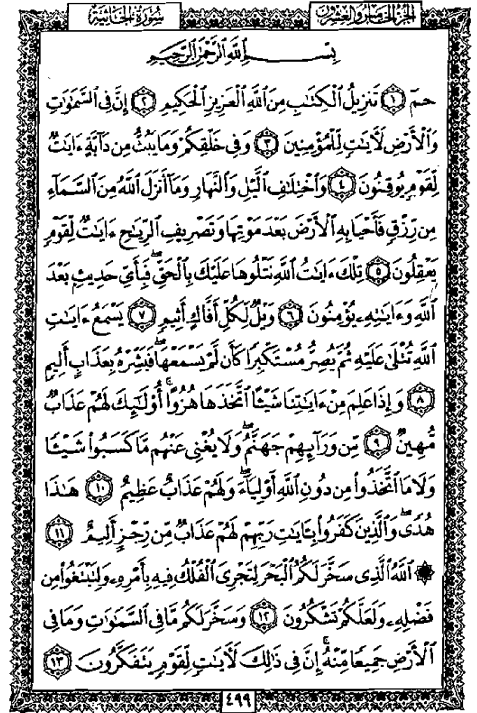 سورة الجاثية الجزء الخامس والعشرون
بسم الله الرحمن الرحيم
حم ١ تنزيل الكتاب من الله العزيز الحكيم ٢ إن في السموات
والأرض لآيات للمؤمنين ٣ وفي خلقكم وما يبث من دابة ءايات
لقوم يوقنون ٤ واختلاف الليل والنهار وما أنزل الله من السماء
من رزق فأحيا به الأرض بعد موتها وتصريف الرياح ءايات لقوم
يعقلون ٥ تلك ءايات الله نتلوها عليك بالحق فبأي حديث بعد
الله وءاياته يؤمنون ٦ ويل لكل أفاك أثيم ٧ يسمع ءايات
الله تتلى عليه ثم يصر مستكبرا كأن لم يسمعها فبشره بعذاب أليم
٨ وإذا علم من ءاياتنا شيئا اتخذها هزوا أولئك لهم عذاب
مهين ٩ من ورائهم جهنم ولا يغني عنهم ما كسبوا شيئا
ولا ما اتخذوا من دون الله أولياء ولهم عذاب عظيم ١٠ هذا
هدى والذين كفروا بآيات ربهم لهم عذاب من رجز أليم ١١
۞ الله الذي سخر لكم البحر لتجري الفلك فيه بأمره ولتبتغوا من
فضله ولعلكم تشكرون ١٢ وسخر لكم ما في السموات وما في
الأرض جميعا منه إن في ذلك لآيات لقوم يتفكرون ١٣
٤٩٩